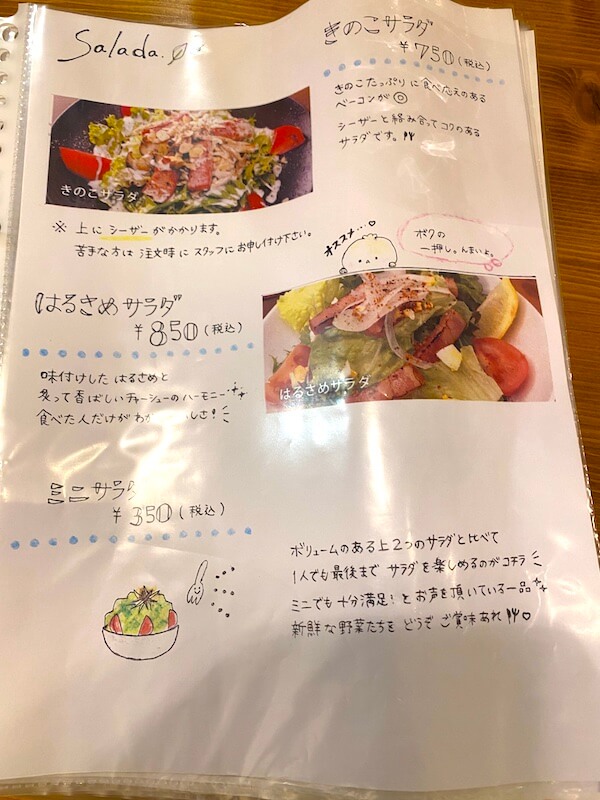 Salada.
きのこサラダ
¥750(税込)
きのこたっぷりに食べたえのある
ベーコンが◎
シーザーと絡み合ってコクのある
サラダです。
きのこサラダ
※ 上にシーザーがかかります。
苦手な方は注文時にスタッフにお申し付け下さい。
オススメ…♡
ボクの
一押し。んまいよ。
はるさめサラダ
¥850(税込)
はるさめサラダ
味付けしたはるさめと
炙って香ばしいチャーシューのハーモニー
食べた人だけがわか しさ!
ミニサラダ
¥350(税込)
ボリュームのある上2つのサラダと比べて
1人でも最後までサラダを楽しめるのがコチラ
ミニでも十分満足!とお声を頂いている一品
新鮮な野菜たちをどうぞご賞味あれ♡